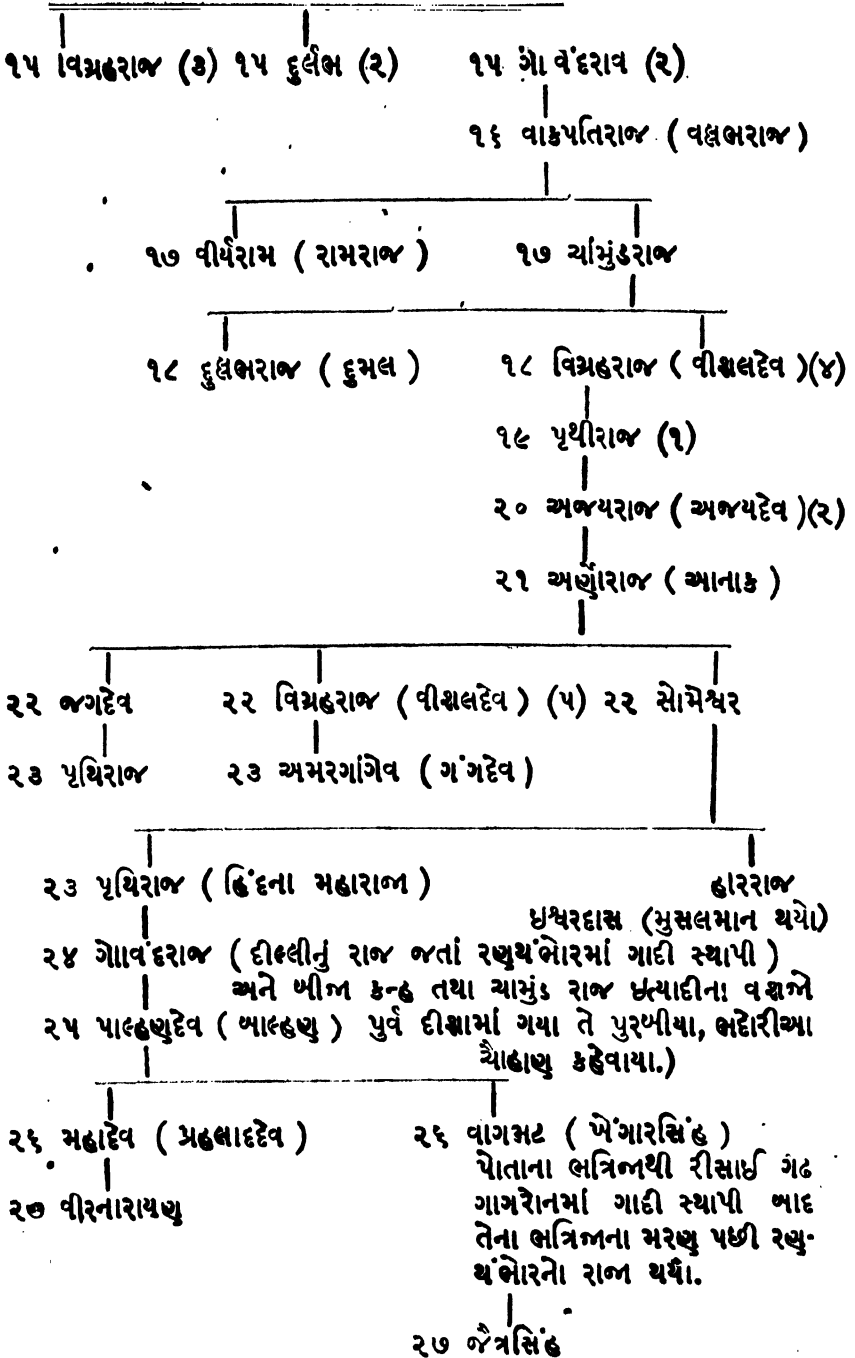 ૧૫ વિગ્રહરાજ (૩) ૧૫ દુર્લભ (૨) ૧૫ ગોવિંદરાવ (૨)
૧૬ વાકપતિરાજ ( વલ્લભરાજ )
૧૭ વીર્યરામ ( રામરાજ ) ૧૭ ચામુંડરાજ
૧૮ દુલભરાજ ( દુમલ ) ૧૮ વિગ્રહરાજ ( વીશલદેવ )(૪)
૧૯ પૃથીરાજ (૧)
૨૦ અજયરાજ ( અજયદેવ )(૨)
૨૧ અર્ણોરાજ ( આનાક )
૨૨ જગદેવ ૨૨ વિગ્રહરાજ ( વીશલદેવ ) (૫) ૨૨ સોમેશ્વર
૨૩ પૃથિરાજ ૨૩ અમરગાંગેવ ( ગંગદેવ )
૨૩ પૃથિરાજ ( હિંદના મહારાજા ) હારરાજ
ઇશ્વરદાસ (મુસલમાન થયો)
૨૪ ગોવિંદરાજ ( દીલ્લીનું રાજ જતાં રણથંભોરમાં ગાદી સ્થાપી )
અને બીજા કન્હ તથા ચામુંડ રાજ ઇત્યાદીના વશજો
૨૫ પાલ્હણદેવ ( બાલ્હણ ) પુર્વ દીશામાં ગયા તે પુરબીયા, ભદોરીઆ
ચૈાહાણ કહેવાયા.)
૨૬ મહાદેવ ( પ્રહલાદદેવ ) ૨૬ વાગભટ ( ખેંગારસિંહ )
પોતાના ભત્રિજાથી રીસાઈ ગઢ
૨૭ વીરનારાયણ ગાગરોનમાં ગાદી સ્થાપી બાદ
તેના ભત્રિજાના મરણ પછી રણ-
થંભોરનો રાજા થયો.
૨૭ જૈત્રસિંહ